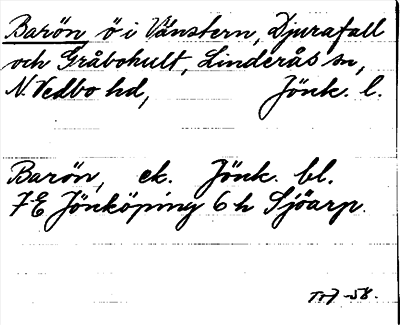 Barön ö i Vänstern, Djurafall
och Gråbohult, Linderås sn,
N. Vedbo hd, Jönk. l.
Barön, ek. Jönk. bl.
7E Jönköping 6h Sjöarp.
58.